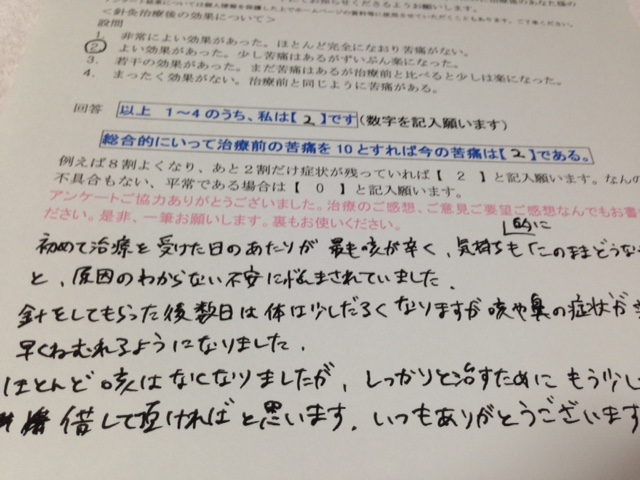 アンケート結果については個人情報を保護した上でホームページの資料等に使用させていただくこともあります。ご了承ください。
＜鍼灸治療後の効果について＞
設問
1. 非常によい効果があった。ほとんど完全になおり苦痛がない。
2. よい効果があった。少し苦痛はあるがずいぶん楽になった。
3. 若干の効果があった。まだ苦痛はあるが治療前と比べると少しは楽になった。
4. まったく効果がない。治療前と同じように苦痛がある。
回答 以上 1～4のうち、私は【 2 】です(数字を記入願います)
総合的にいって治療前の苦痛を10とすれば今の苦痛は【 2 】である。
例えば8割よくなり、あと2割だけ症状が残っていれば【 2 】と記入願います。なんの
不具合もない、平常である場合は【 0 】と記入願います。
アンケートご協力ありがとうございました。治療のご感想、ご意見ご要望ご感想なんでもお書
ださい。是非、一筆お願いします。裏もお使いください。
的に
初めて治療を受けた日のあたりが最も咳が辛く、気持ち も「このままどうな
と、原因のわからない不安に悩まされていました。
針をしてもらった後数日は体は少しだるくなりますが咳や鼻の症状が
早くねむれるようになりました。
ほとんど咳はなくなりましたが、しっかりと治すためにもう少し
借して頂ければと思います。いつもありがとうございます